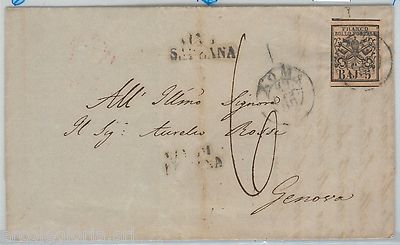 FRANCO
BOLLO POSTALE
BAJ 5
VIA DI
SARZANA
ROMA
All' Illmo Signore
Il Sig: Aurelio Rossi
6
VIA DI
Genova